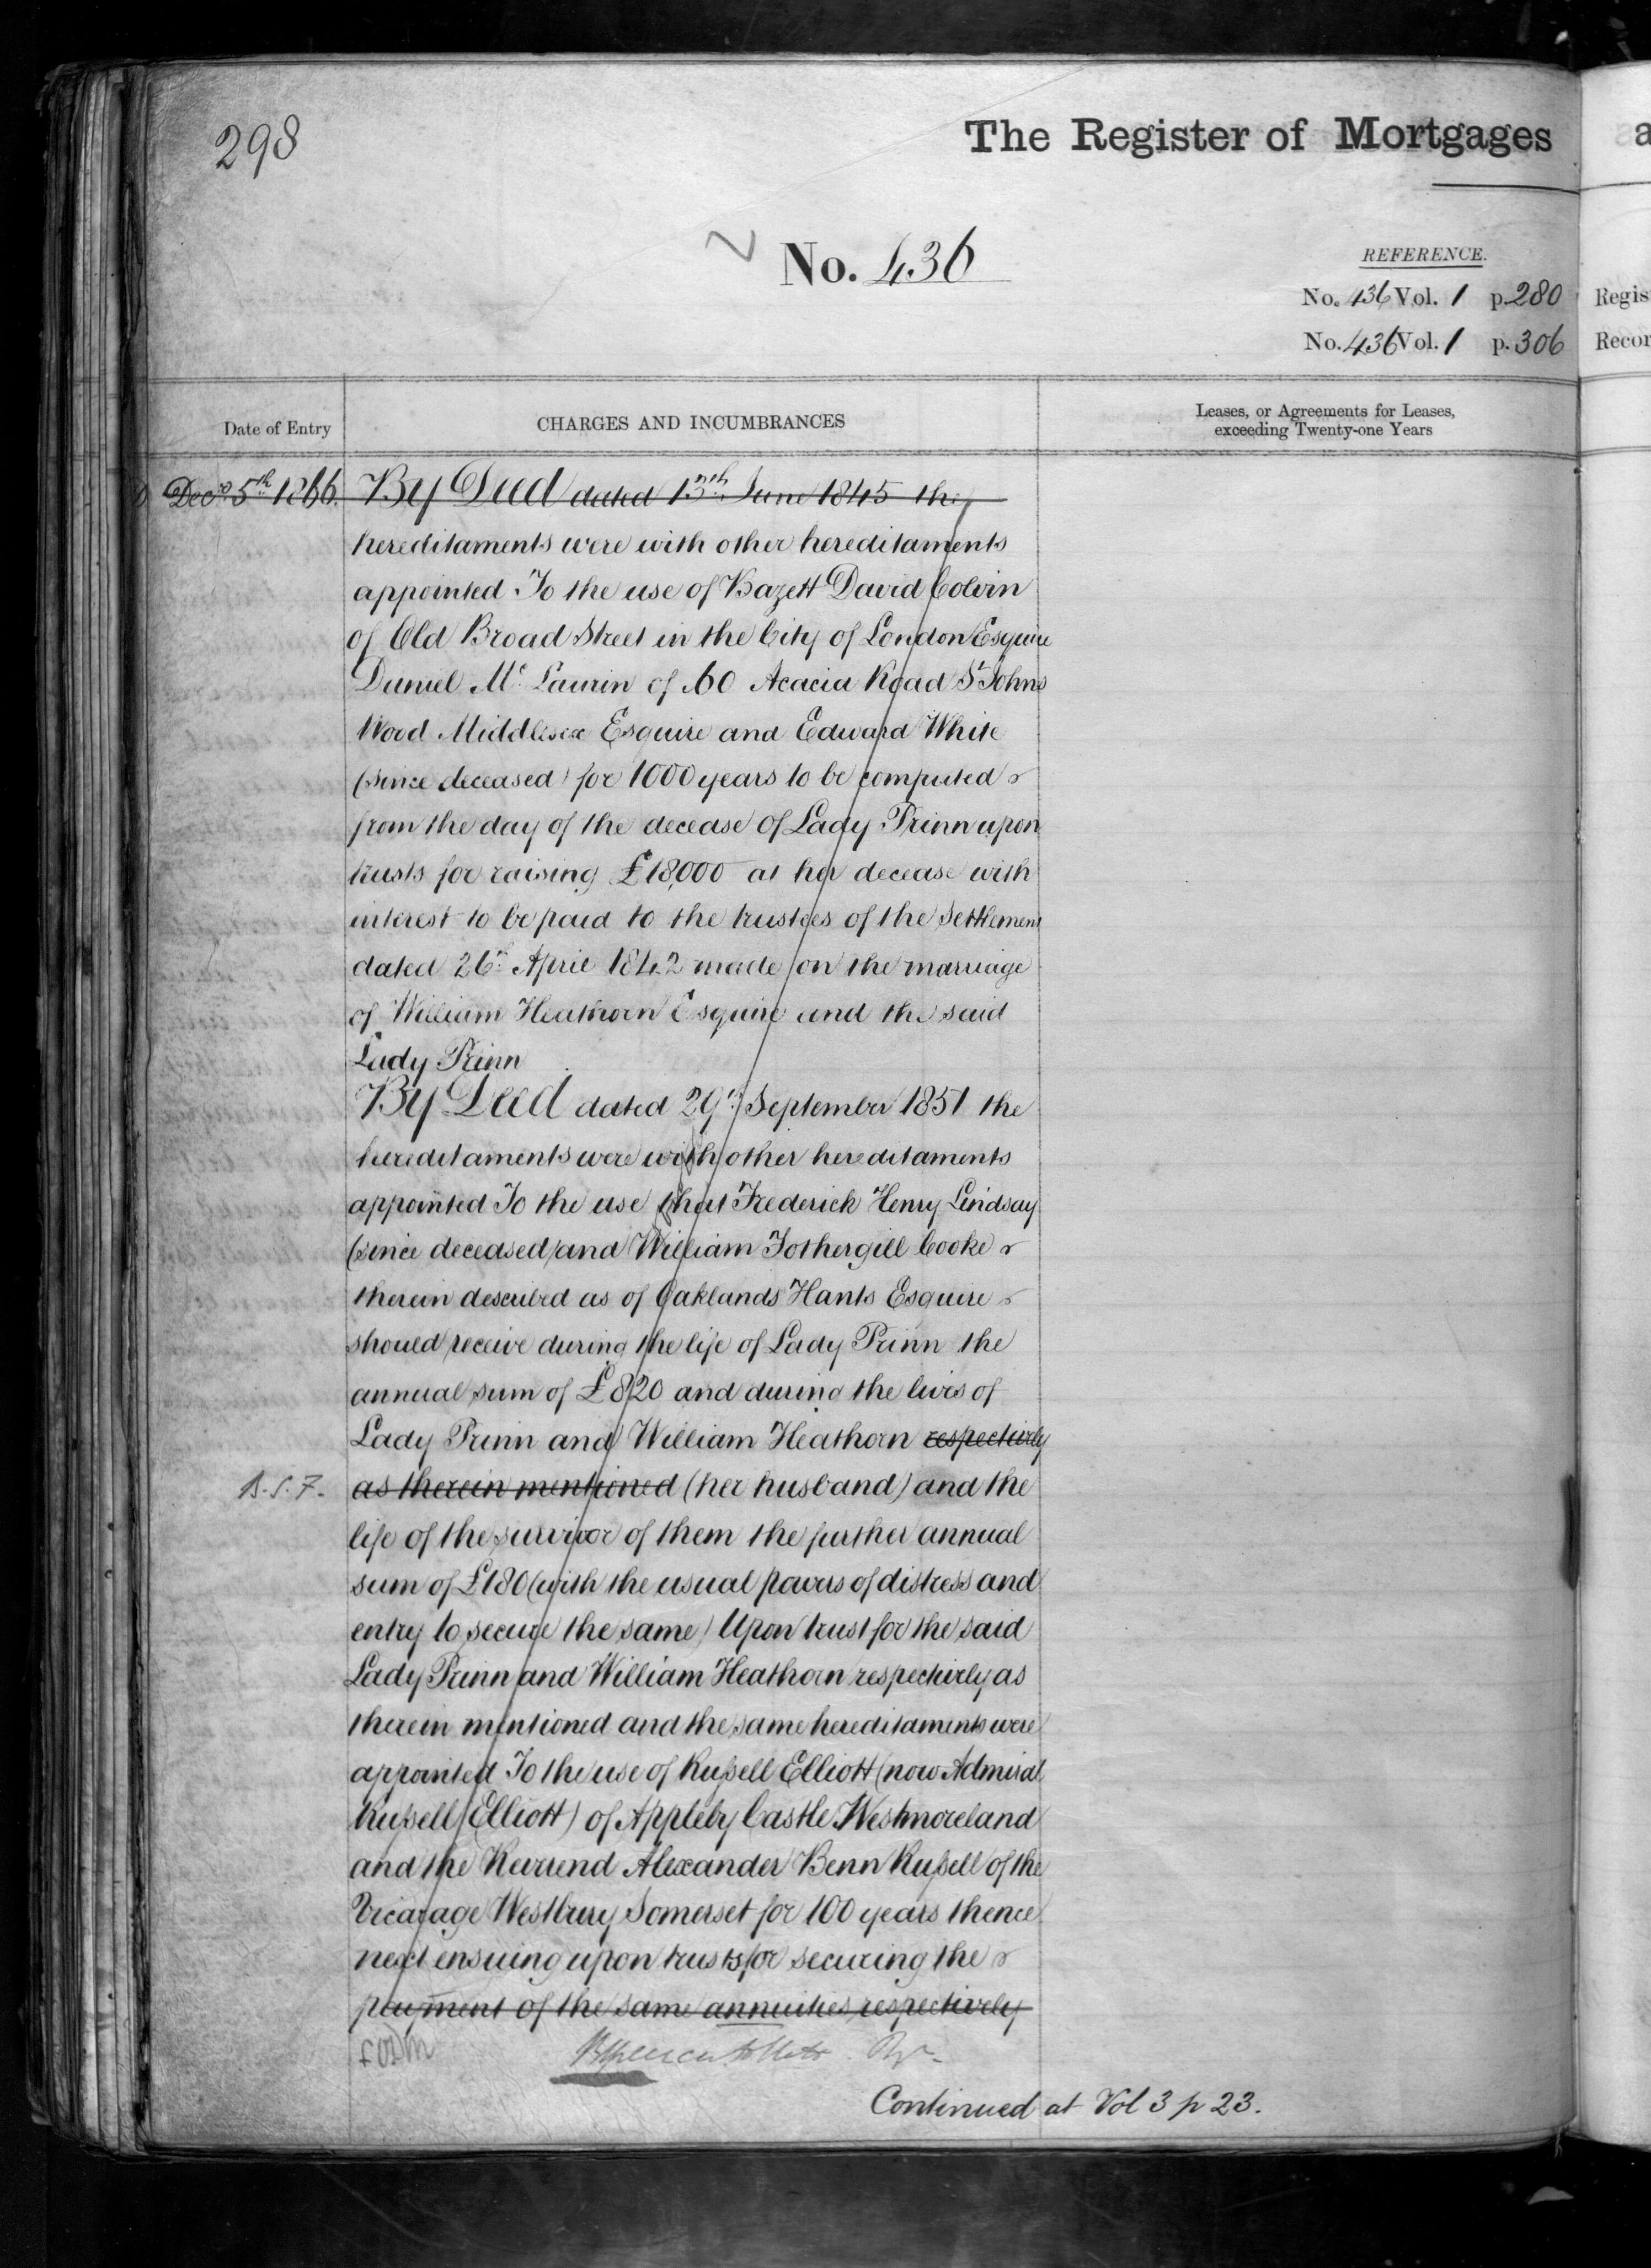 298
The Register of Mortgages
No. 436
REFERENCE.
No. 436 Vol. 1 p. 280
No. 436 Vol. 1 p. 306
Regis
Recor
Date of Entry
CHARGES AND INCUMBRANCES
Leases, or Agreements for Leases,
exceeding Twenty-one Years
Decr 5th 1866.
By Deed dated 13th June 1845 the
hereditaments were with other hereditaments
appointed To the use of Bazett David Colvin
of Old Broad Street in the City of London Esquire
Daniel Mc Laurin of 60 Acacia Road St Johns
Wood Middlesex Esquire and Edward White
(since deceased) for 1000 years to be computed
from the day of the decease of Lady Prinn upon
trusts for raising £18,000 at her decease with
interest to be paid to the trustees of the Settlement
dated 26th April 1842 made on the marriage
of William Heathorn Esquire and the said
Lady Prinn
By Deed dated 29th September 1851 the
hereditaments were with other hereditaments
appointed To the use that Frederick Henry Lindsay
(since deceased) and William Fothergill Cooke
therein described as of Oaklands Hants Esquire
should receive during the life of Lady Prinn the
annual sum of £820 and during the lives of
Lady Prinn and William Heathorn respectively
B.S.F.
as therein mentioned (her husband) and the
life of the survivor of them the further annual
sum of £180 (with the usual powers of distress and
entry to secure the same) Upon trust for the said
Lady Prinn and William Heathorn respectively as
therein mentioned and the same hereditaments were
appointed To the use of Russell Elliott (now Admiral
Russell Elliott) of Appleby Castle Westmoreland
and the Reverend Alexander Benn Russell of the
Vicarage Westbury Somerset for 100 years thence
next ensuing upon trusts for securing the
payment of the same annuities respectively
Continued at Vol 3 p 23.